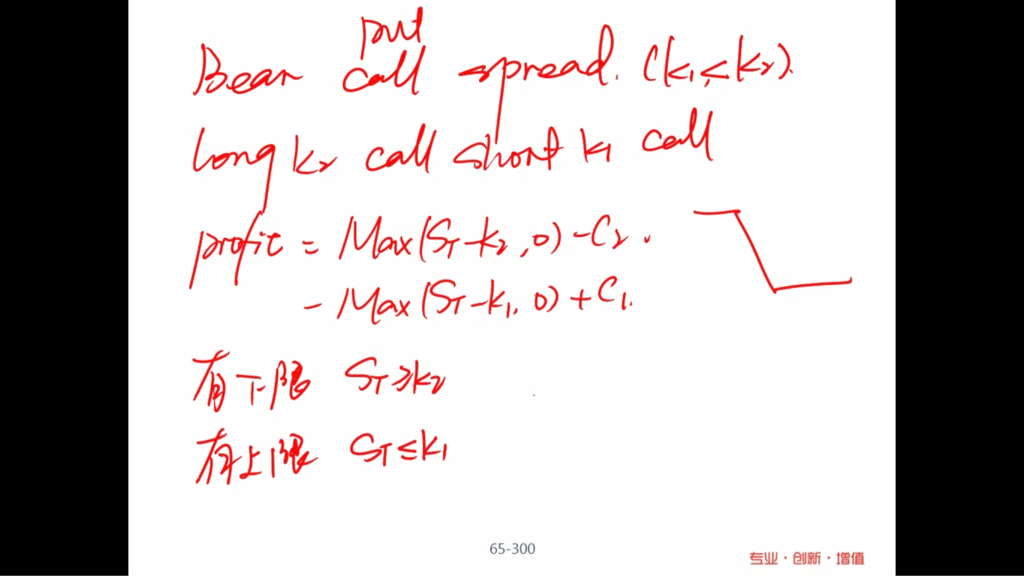 put
Bear call spread. (K₁≤K₂).
long K₂ call short K₁ call
profit = Max(S_T-K₂,0)-C₂.
- Max(S_T-K₁,0)+C₁.
有下限 S_T≥K₂
有上限 S_T≤K₁
65-300
专业·创新·增值